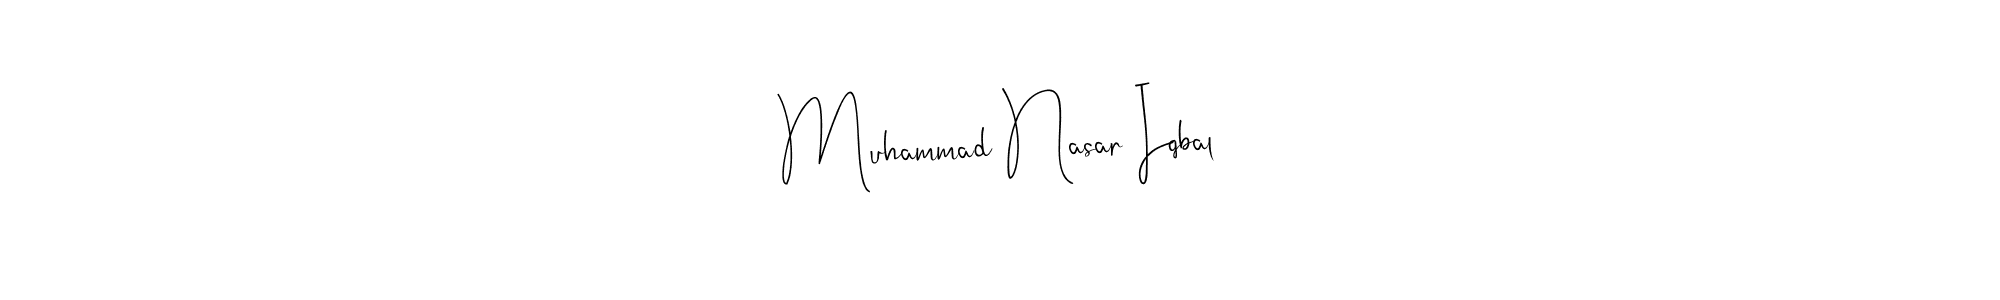 Muhammad Nasar Iqbal